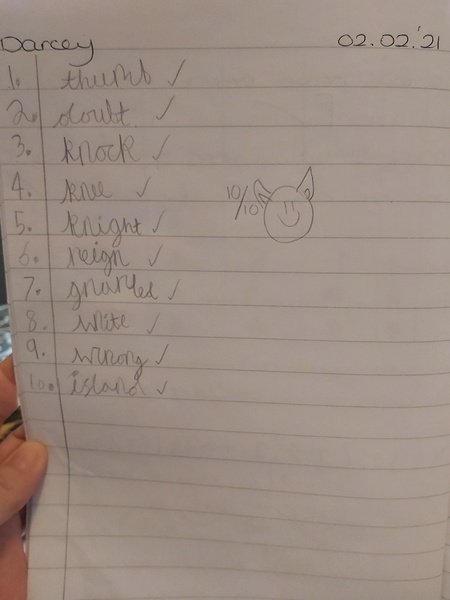 Darcey 02.02.'21
1. thumb ✓
2. doubt ✓
3. knock ✓
4. knee ✓
5. knight ✓
6. reign ✓
7. gnarled ✓
8. write ✓
9. wrong ✓
10. island ✓
10/10